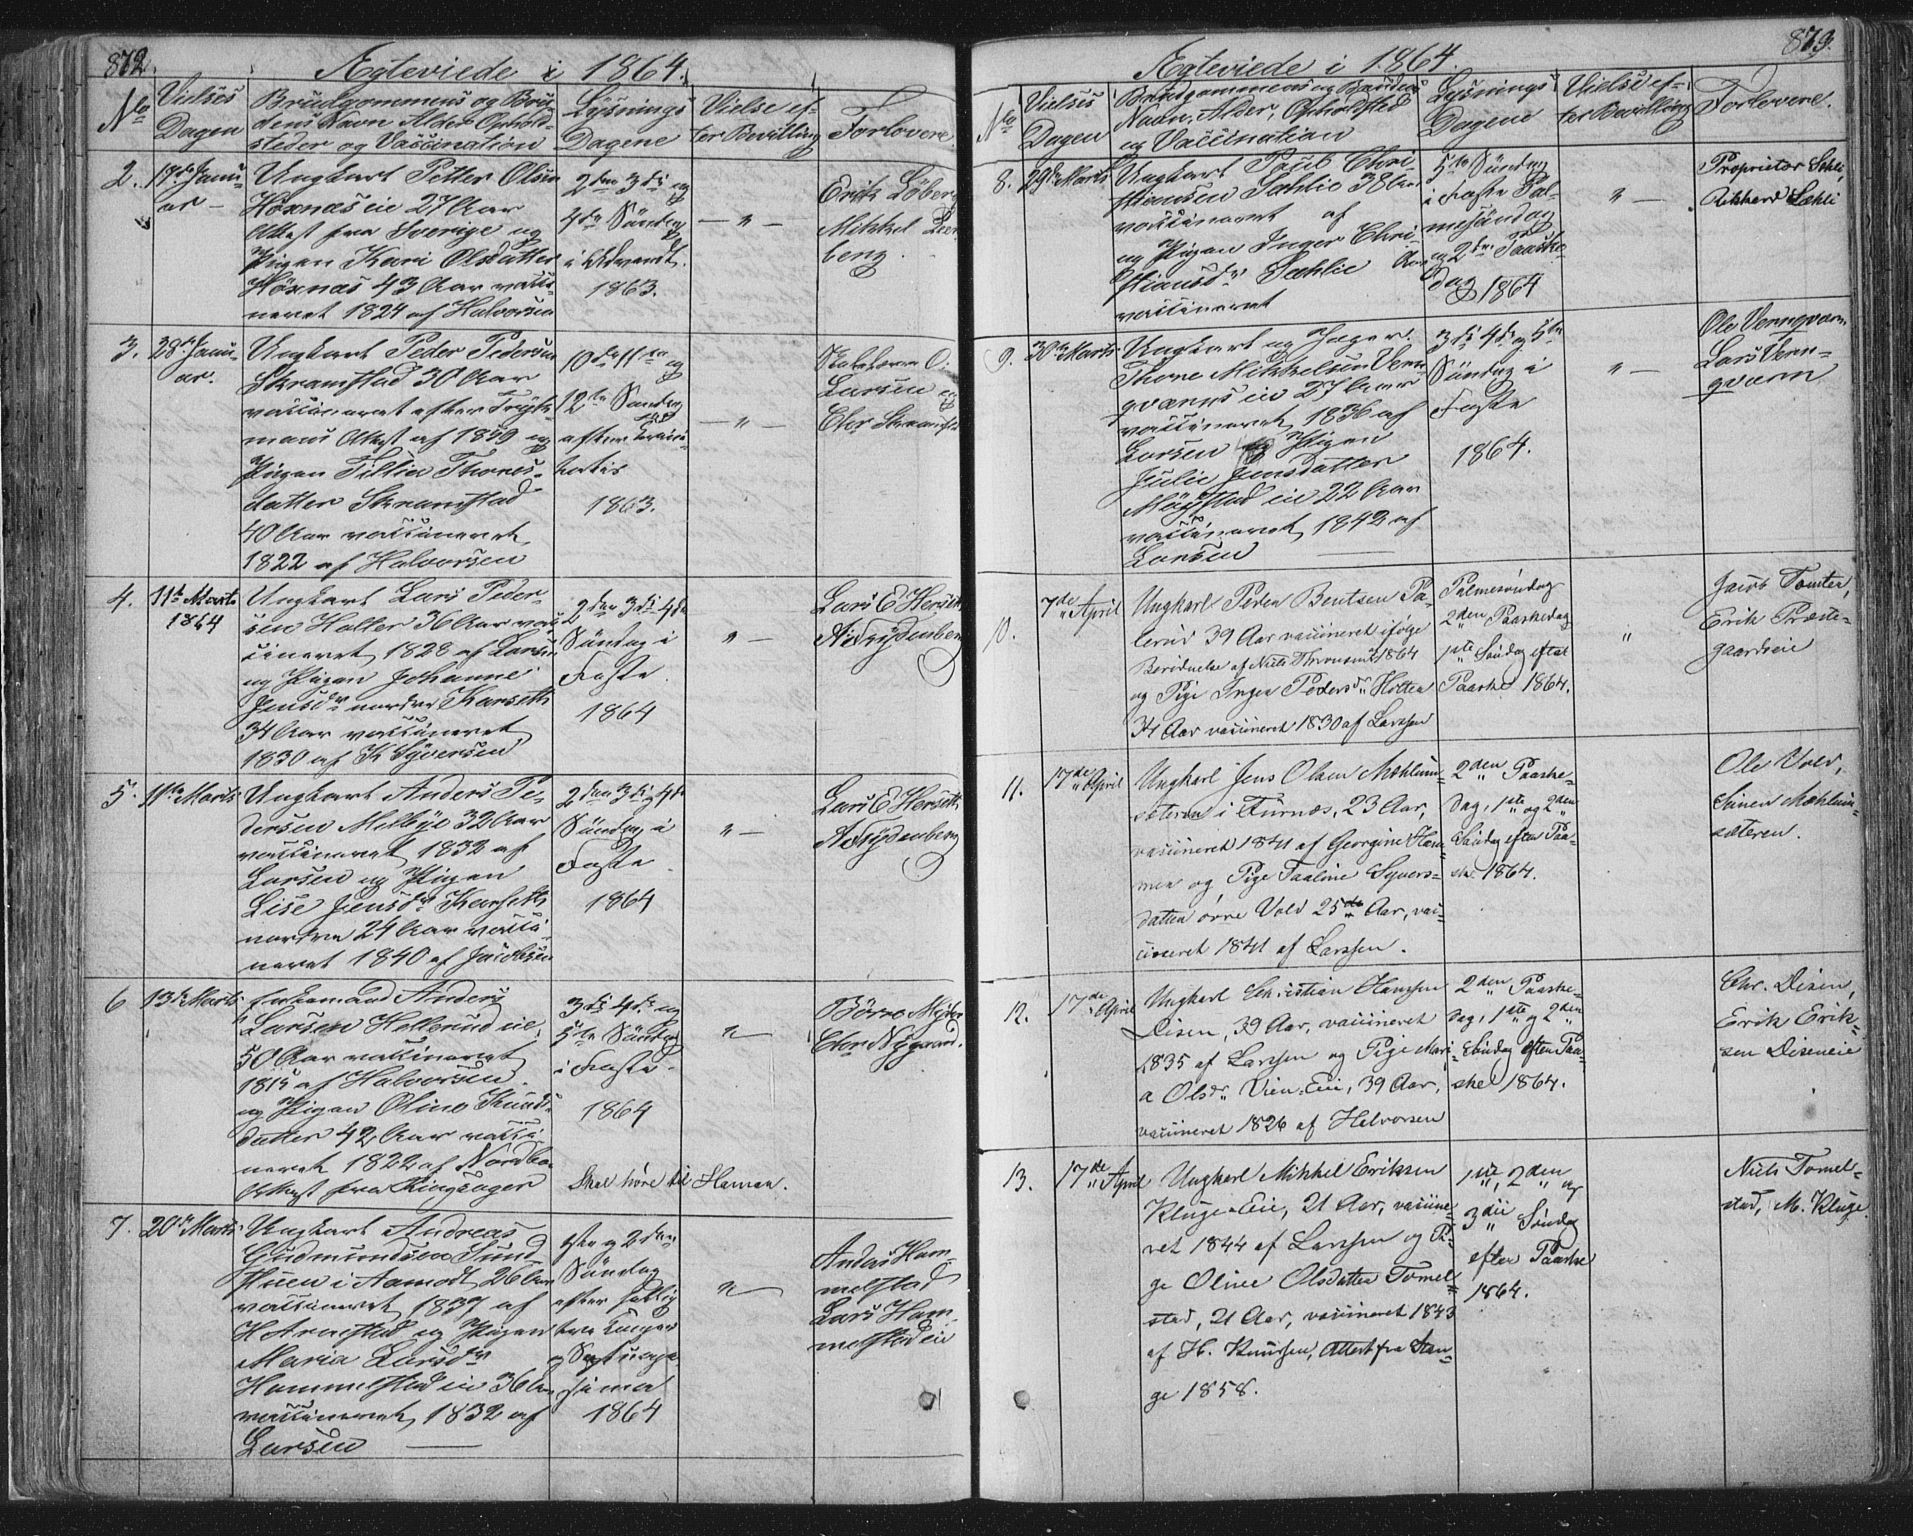 872.
Ægteviede i 1864.
No
Vielses
Dagen
Brudgommens og Bru-
dens Navn Alder Ophold-
steder og Vaccination
Lysnings
Dagene
Vielse ef-
ter Bevilling
Forlovere
2.
Janu-
ar
Ungkarl Petter Olsen
Hoxnæs eie 27 Aar
Attest fra Sverige og
Pigen Kari Olsdatter
Hoxnæs 43 Aar vacci-
neret 1824 af Halvorsen
2den 3die og
4de Søndag
i Advendt.
1863.
— " —
Erik Løberg
Mikkel
berg.
3.
28de Janu-
ar.
Ungkarl Peder Pedersen
Skramstad 30 Aar
vaccineret efter
Attest af 1859 og
Pigen Tillia Thores-
datter Skramstad
40 Aar vaccineret
1822 af Halvorsen
10de 11te og
12te Søndag
efter
1863.
— " —
O.
Larsen og
Skramstad
4.
11te Marts
1864
Ungkarl Lars Peder-
sen Haller 36 Aar vac-
cineret 1828 af Larsen
og Pigen Johanne
Jensdr nordre Karseth
34 Aar vaccineret
1830 af K Syversen
2den 3die 4de
Søndag i
Faste.
1864
" —
Lars E Herseth
A Frydenberg
5.
11te Marts
Ungkarl Anders Pe-
dersen Melbye 32 Aar
vaccineret 1832 af
Larsen og Pigen
Lise Jensdr Karseth
nordre 24 Aar vacci-
neret 1840 af Jacobsen
2den 3die 4de
Søndag i
Faste
1864
" —
Lars E Herseth
A Frydenberg
6
13de Marts
Enkemand Anders
Larsen Hellerud eie,
50 Aar vaccineret
1815 af Halvorsen.
og Pigen Oline Knuds-
datter 42 Aar vacci-
neret 1822 af
Attest fra Ringsager
3die 4de og
5te Søndag
i Faste.
1864
Skal høre til Hamar.
" —
Nygaard.
7.
20de Marts
Ungkarl Andreas
Gudmundsen Sund
i Aamodt 26 Aar
vaccineret 1837 af
H Arnestad og Pigen
Maria Larsdr
Hammelstad eie 36 Aar
vaccineret 1832 af
Larsen
1ste og 2den
Søndag
efter hellig
tre Konger
og Septuage-
sima
1864
" —
Anders Ham-
melstad
Lars Ham-
melstadeie
873.
Ægteviede i 1864.
No
Vielses
Dagen
Brudgommens og Brudens
Navn, Alder, Opholdsted
og Vaccination
Lysnings
Dagene
Vielse ef-
ter Bevilling
Forlovere.
8.
29de Marts
Ungkarl Chri
stiansen Sæhlie 38 Aar
vaccineret af
og Pigen Inger Chri
stiansdr Sæhlie Aar
vaccineret
5te Søndag
i Faste Pal-
mesøndag
og 2den Paaske-
dag 1864
" —
Proprietær Sehli,
Rikhard Sæhli
9.
30te Marts
Ungkarl og Jæger
Thore Mikkelsen Venn-
qværns eie 27 Aar
vaccineret 1836 af
Larsen og Pigen
Julie Jensdatter
Møystad eie 22 Aar
vaccineret 1842 af
Larsen
3die 4de og 5te
Søndag i
Faste
1864.
" —
Ole Vennqværn
Lars Venn-
qværn
10.
7de April
Ungkarl Peder Bentsen Pa-
lerud 39 Aar vaccineret ifølge
Bevidnelse af Niels Thronsen 1864
og Pige Inger Pedersdr Holten
34 Aar vaccineret 1830 af Larssen
Palmesøndag
2den Paaskedag
1ste Søndag efter
Paaske 1864.
"
Jacob Tomter,
Erik Præste-
gaardseie
11.
17de April
Ungkarl Jens Olsen Mæhlum-
sæteren i Furnæs, 23 Aar,
vaccineret 1841 af Georgine Ham-
mer og Pige Pauline Syvers-
datter øvre Vold 25 Aar, vac-
cineret 1841 af Larssen.
2den Paaske-
dag, 1ste og 2den
Søndag efter Paa-
ske 1864.
Ole Vold,
Simen Mæhlum-
sæteren.
12.
17de April
Ungkarl Christian Hanssen
Disen, 39 Aar, vaccineret
1835 af Larssen og Pige Mari-
a Olsdr Vien-Eie, 39 Aar,
vaccineret 1826 af Halvorsen
2den Paaske-
dag, 1ste og 2den
Søndag efter Paa-
ske 1864.
Chr. Disen,
Erik Erik-
sen Diseneie
13.
17de April
Ungkarl Mikkel Eriksen
Kluge-Eie, 21 Aar, vaccine-
ret 1844 af Larssen og Pi-
ge Oline Olsdatter Tomel-
stad, 21 Aar, vaccineret 1843
af H. Knudsen, Attest fra Stan-
ge 1858.
1ste, 2den og
3die Søndag
efter Paaske
1864.
Niels Tomel-
stad, M. Kluge.